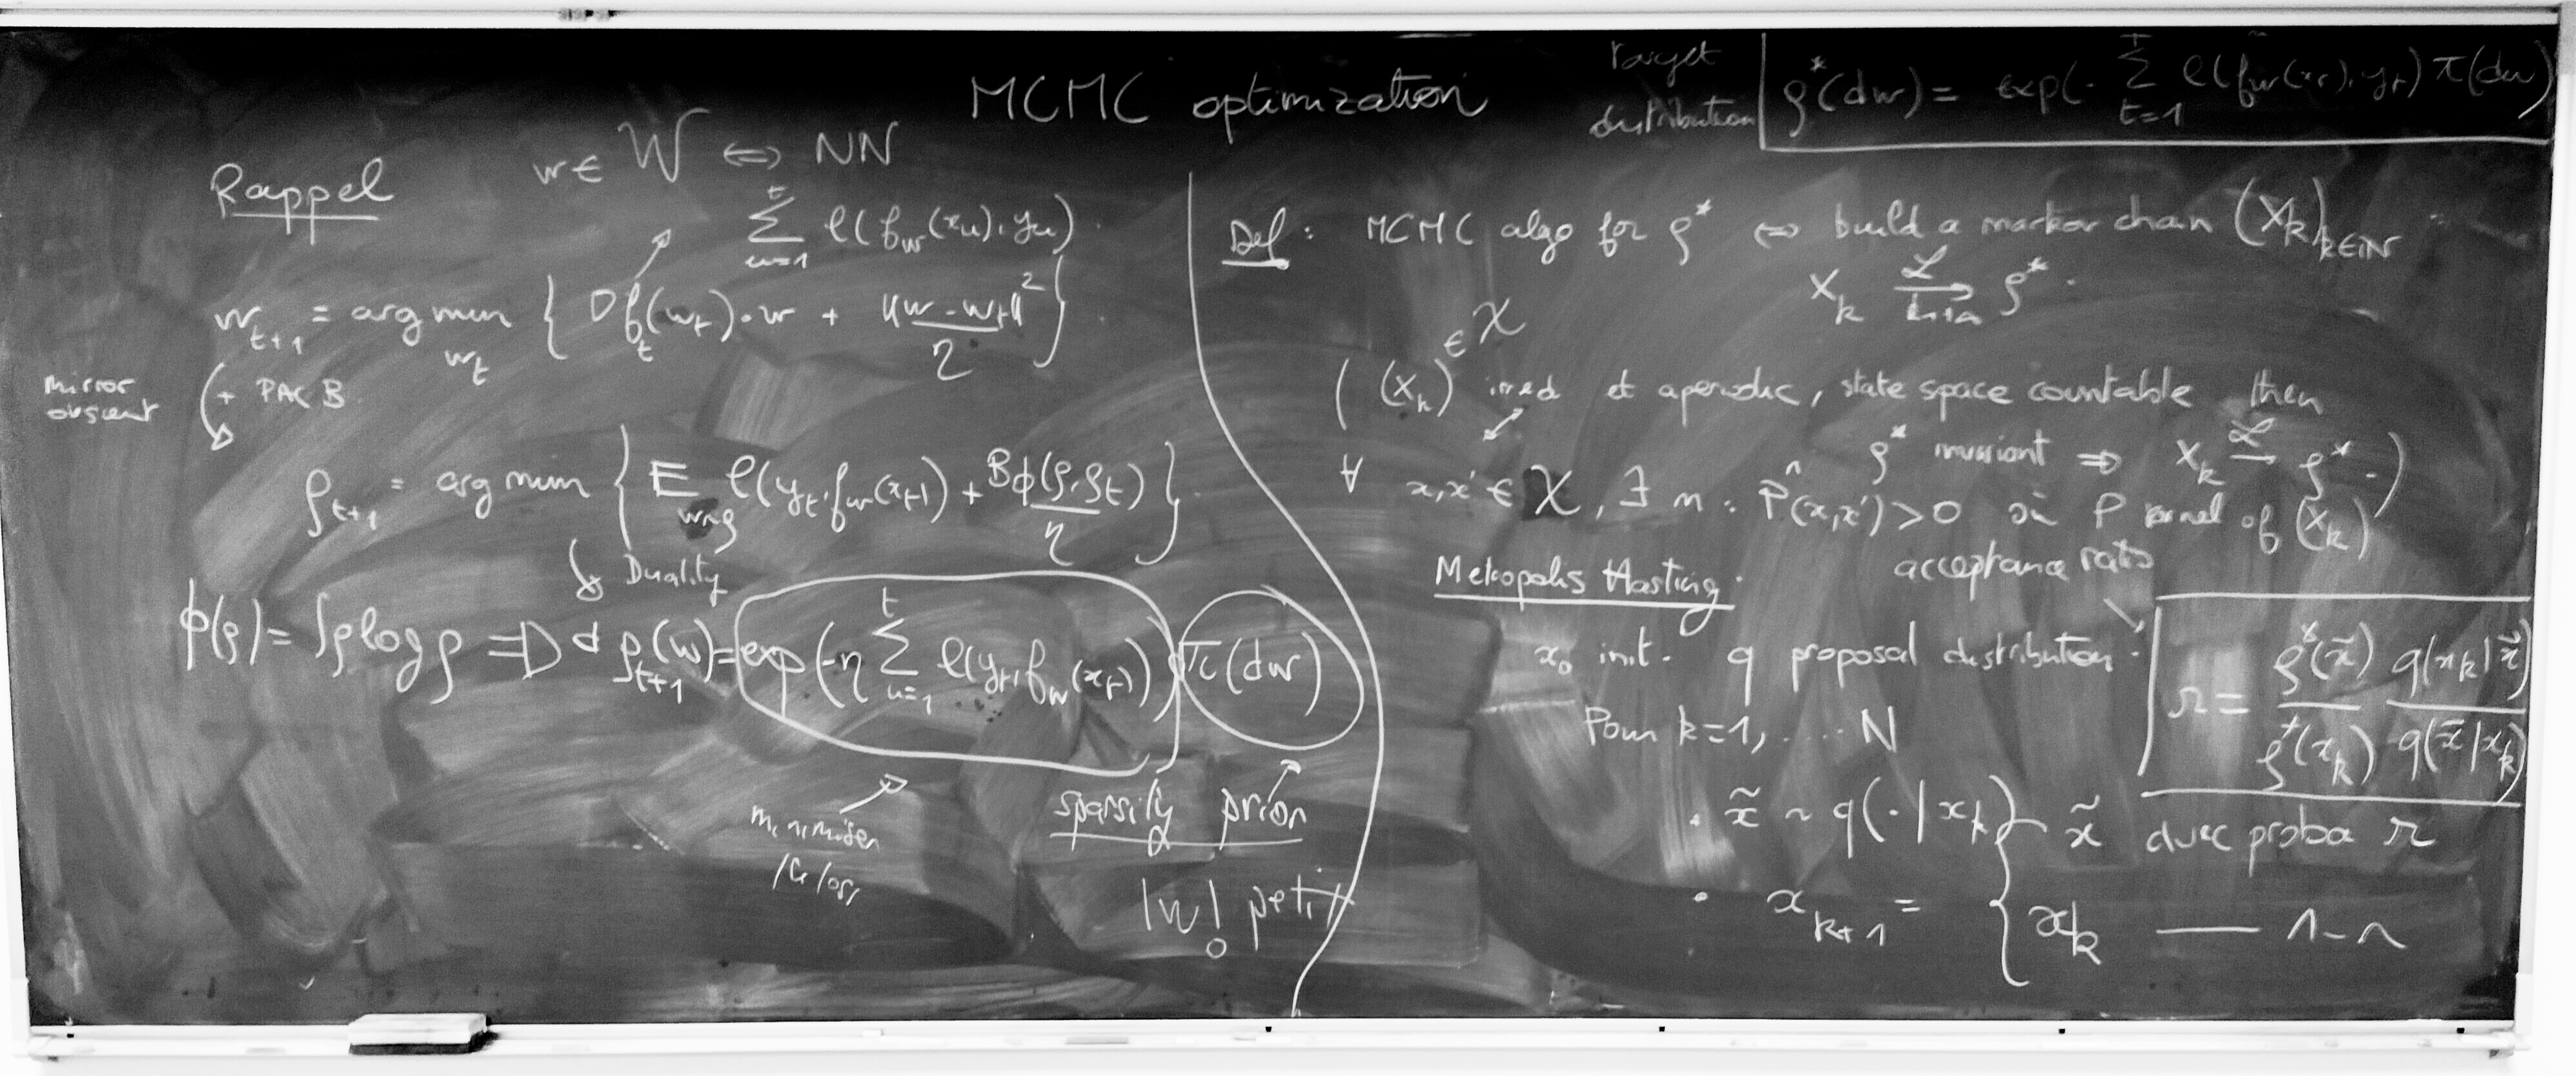 MCMC optimization
Target distribution
ρ*(dw) = exp(- Σ_{t=1}^{T} ℓ(f_w(x_t), y_t) π(dw)
Rappel
w ∈ W ⇔ NN
Σ_{u=1}^{t} ℓ(f_w(x_u), y_u)
w_{t+1} = arg min_{w_t} { ∇f_t(w_t)·w + ‖w - w_t‖² / η }
Mirror descent
+ PAC B
ρ_{t+1} = arg min { E_{w~ρ} ℓ(y_t, f_w(x_{t+1})) + B_ϕ(ρ, ρ_t) / η }
Duality
ϕ(ρ) = ∫ρ log ρ ⇒ d ρ_{t+1}(w) = exp(-η Σ_{u=1}^{t} ℓ(y_t, f_w(x_t))) π(dw)
minimiser
sparsity prior
|w|_0 petit
Def : MCMC algo for ρ* ⇔ build a markov chain (X_k)_{k∈ℕ}
X_k →^ℒ ρ*.
∈ χ
( (X_k) irred et aperiodic, state space countable then
ρ* invariant ⇒ X_k →^ℒ ρ*. )
∀ x, x' ∈ χ, ∃ n : P^n(x,x') > 0 où P kernel of (X_k)
Metropolis Hasting.
acceptance ratio
x_0 init. q proposal distribution.
r = ρ*(x̃) / ρ*(x_k) q(x_k|x̃) / q(x̃|x_k)
Pour k=1, .... N
• x̃ ~ q(·|x_k)
• x_{k+1} = { x̃ avec proba r
x_k —— 1-r